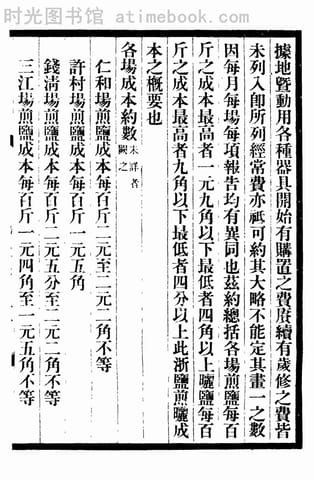 时光图书馆 - www.timebook.cc
據地暨動用各種器具開始有購置之費賡續有歲修之費皆
未列入卽所列經常費亦祗可約其大略不能定其畫一之數
因每月每場每項報告均有異同也茲約總括各場煎鹽每百
斤之成本最高者一元九角以下最低者四角以上曬鹽每百
斤之成本最高者九角以下最低者四分以上此浙鹽煎曬成
本之概要也
各場成本約數 未詳者闕之
仁和場煎鹽成本每百斤二元至二元二角不等
許村場煎鹽成本每百斤一元五角
錢淸場煎鹽成本每百斤二元五分至二元二角不等
三江場煎鹽成本每百斤一元四角至一元五角不等